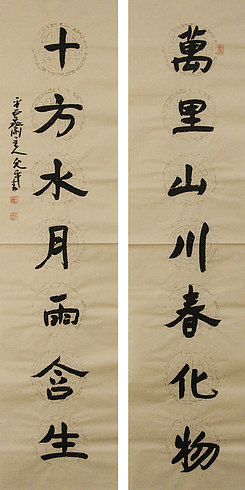 萬里山川春化物
十方水月雨含生